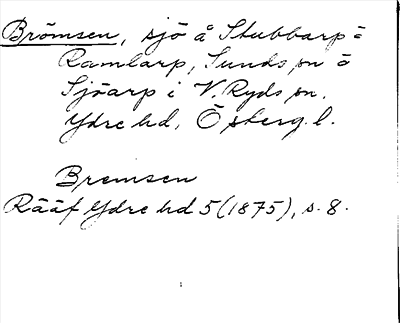 Brömsen, sjö å Stubbarp o
Ramlarp, Sunds sn o
Sjöarp i V. Ryds sn.
Ydre hd, Österg. l.
Bremsen
Rääf Ydre hd 5 (1875), s. 8.